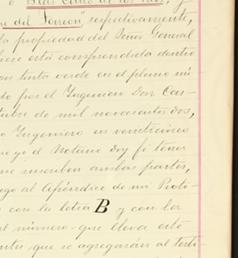 o Blas Cano de los Rios, y
del Torreón respectivamente,
la propiedad del Señor General
esta comprendida dentro
con tinta verde en el plano nú
do por el Ingeniero Don Car
tubre de mil novecientos dos,
Ingeniero en veinticinco
el Notario doy fé tener
inscriben ambas partes,
go al apéndice de mi Proto
con la letra B y con los
el número que lleva esta
que se agregarán al testi